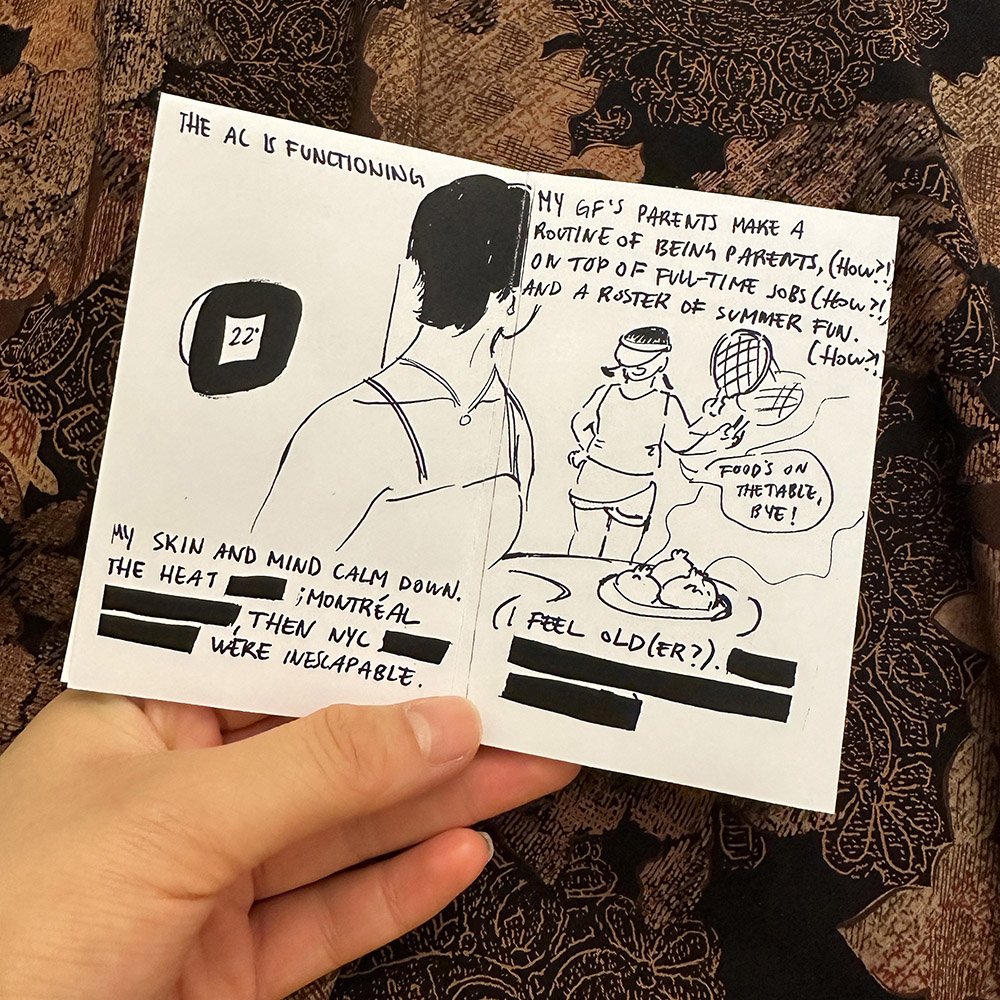 THE AC IS FUNCTIONING
22°
MY SKIN AND MIND CALM DOWN.
THE HEAT ; MONTRÉAL
, THEN NYC
WERE INESCAPABLE.
MY GF'S PARENTS MAKE A
ROUTINE OF BEING PARENTS, (HOW?!)
ON TOP OF FULL-TIME JOBS (HOW?!)
AND A ROSTER OF SUMMER FUN.
(HOW?!)
FOOD'S ON
THE TABLE,
BYE!
(I FEEL OLD(ER?).